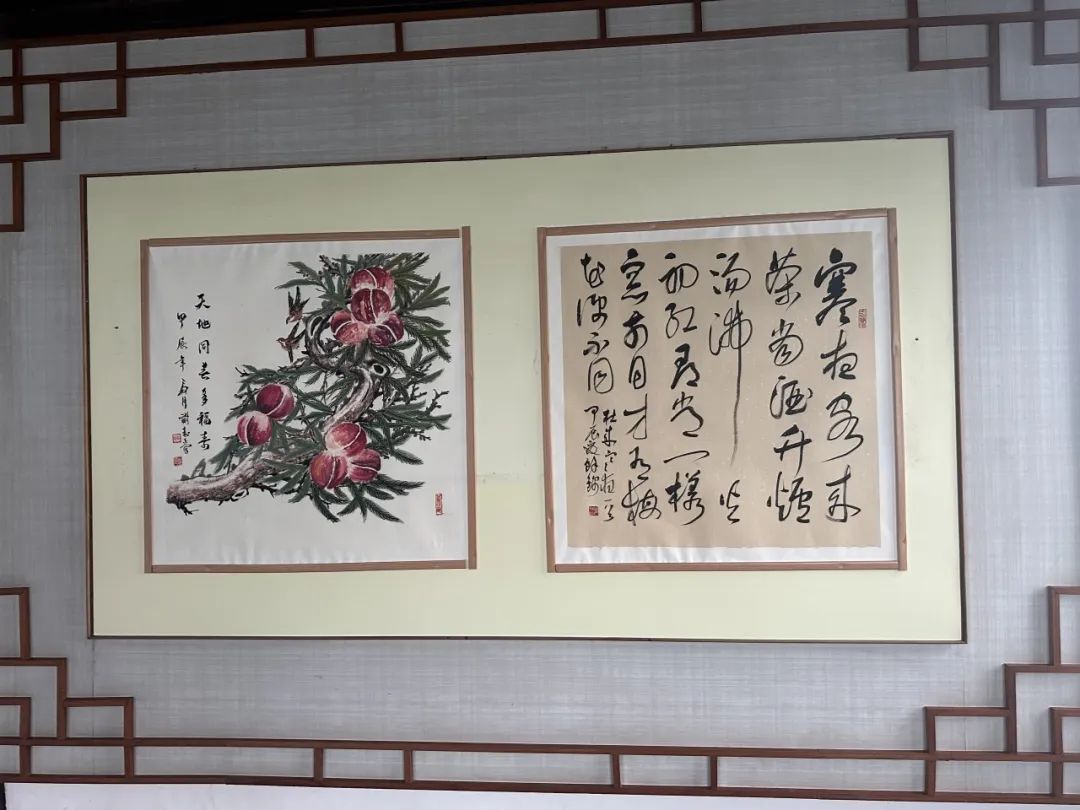 天地同春多福寿
甲辰年
寒夜客来
茶当酒竹爐
汤沸火
初红寻常一様
窗前月才有梅
花便不同
杜耒寒夜一首
甲辰